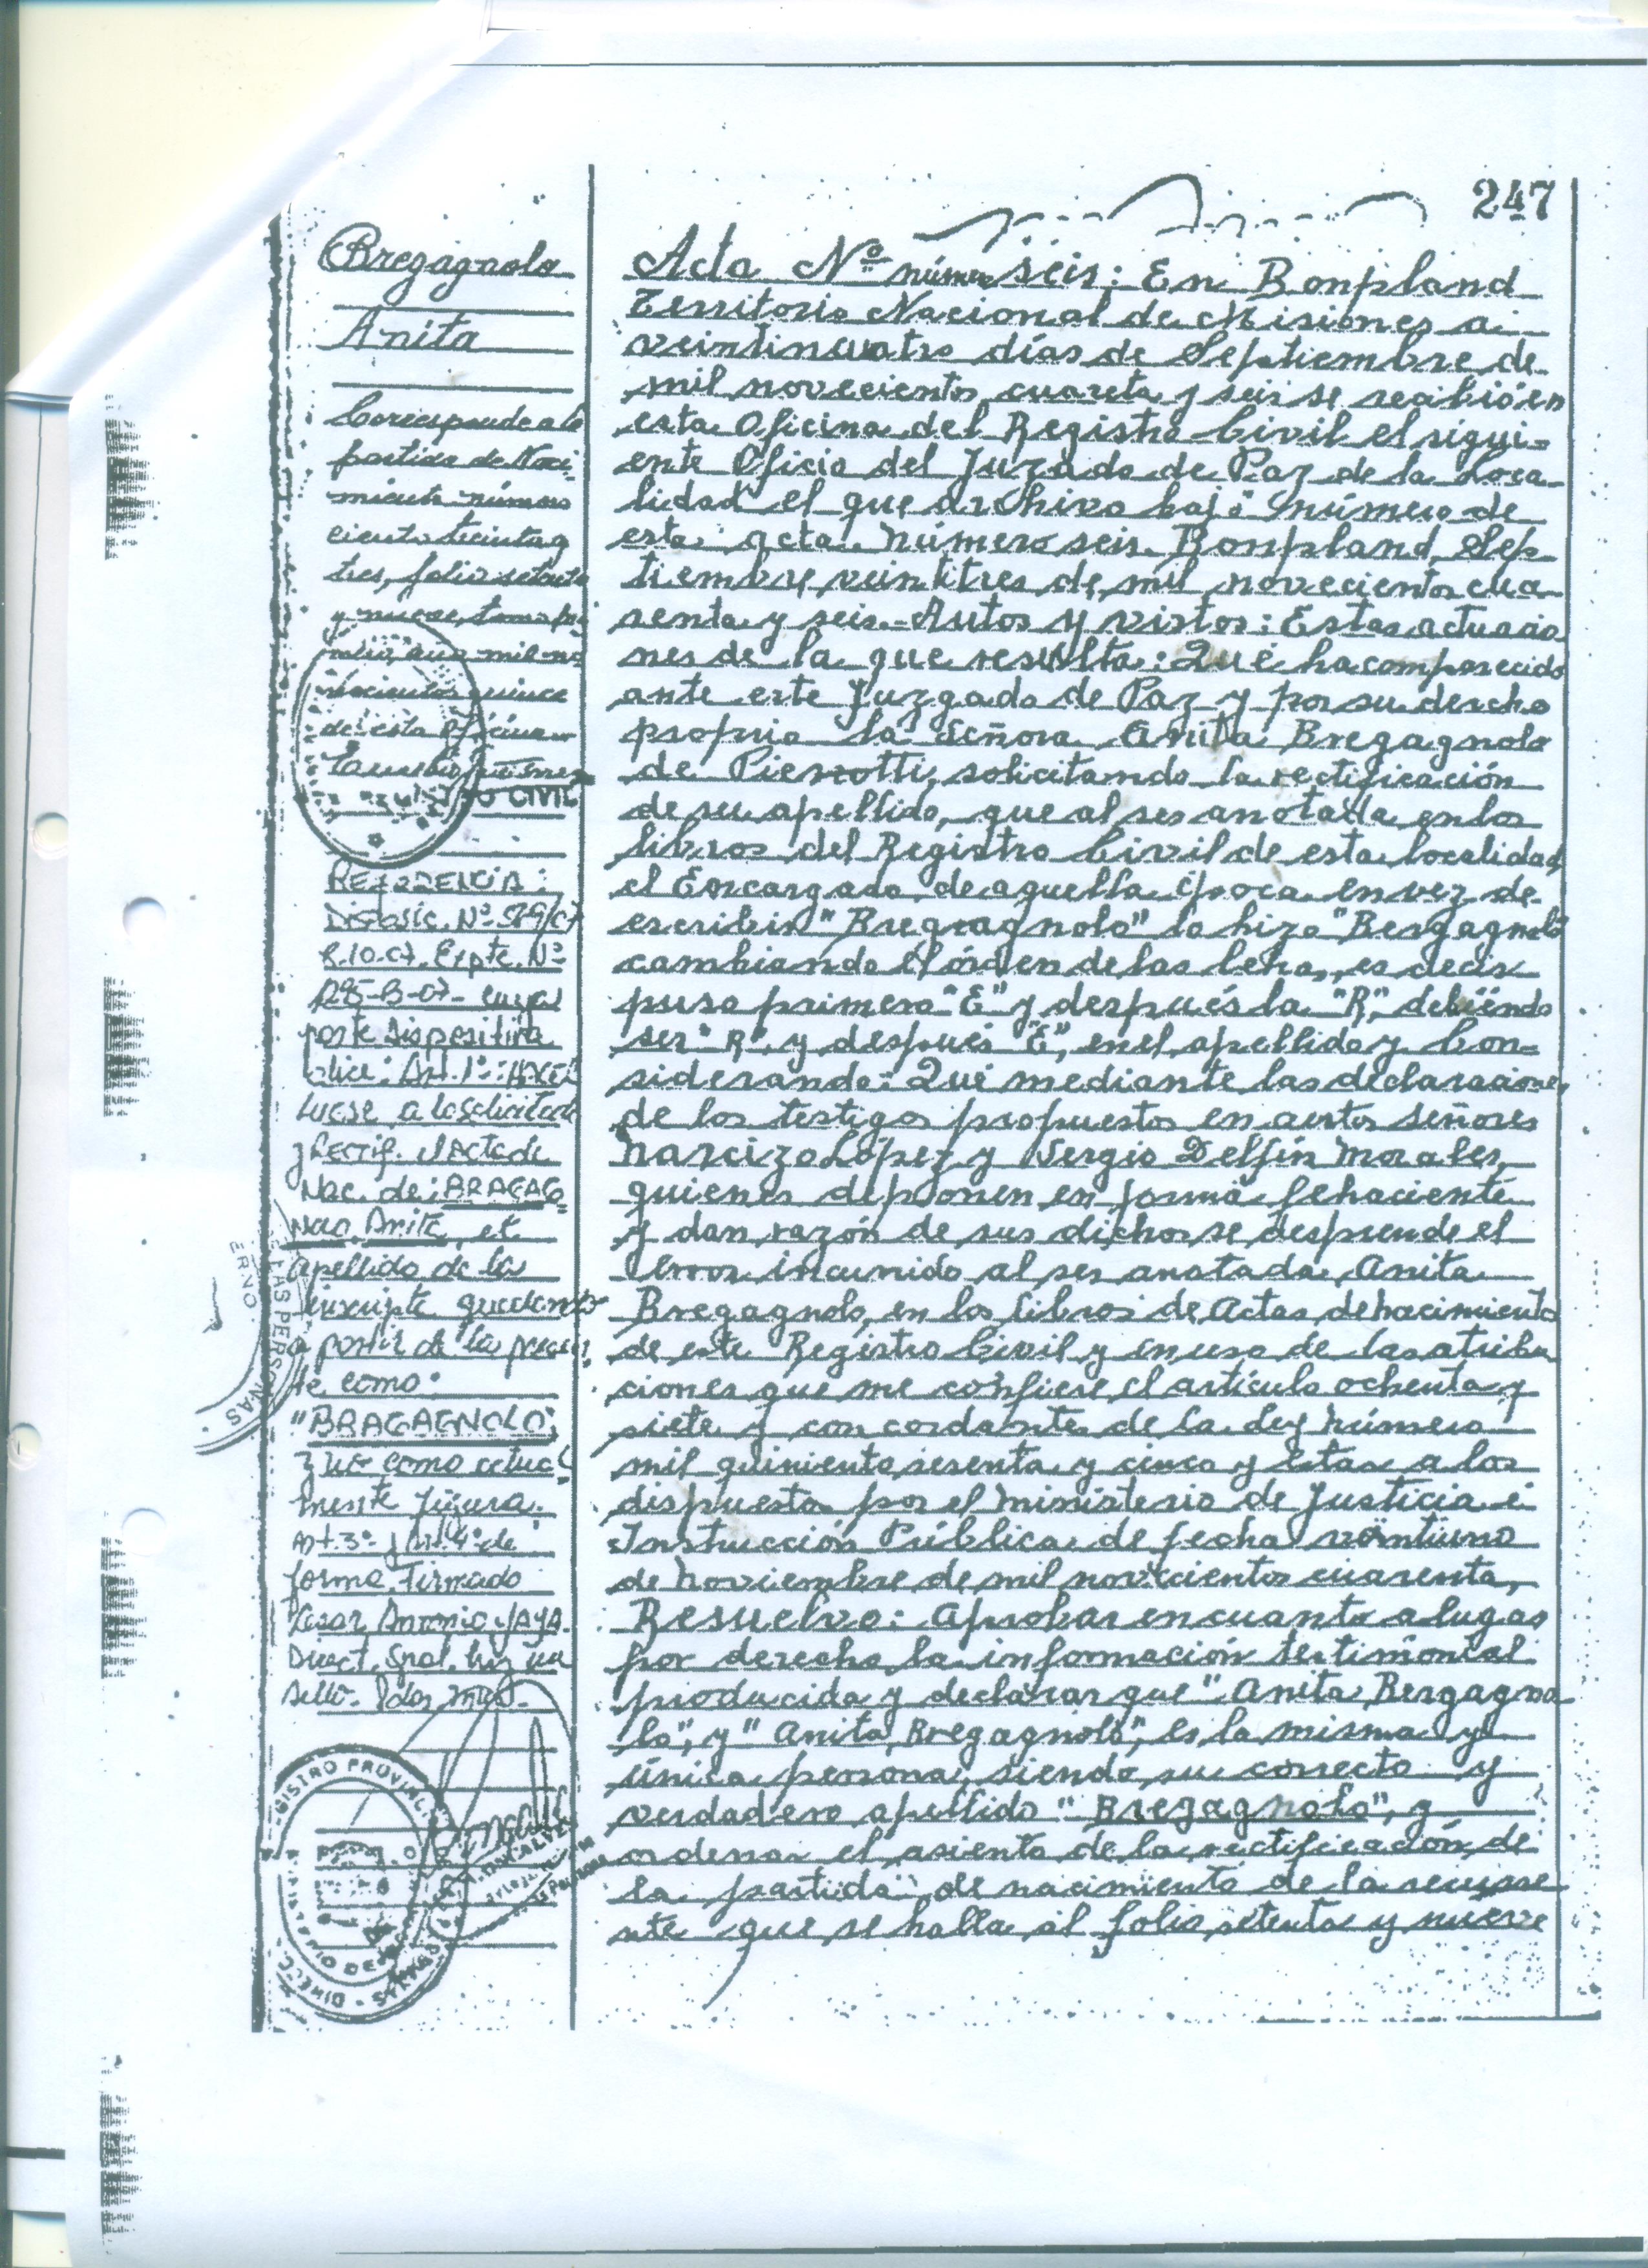 247
Bregagnolo
Anita
Corresponde a la
partida de Naci-
miento número
ciento treinta y
tres, folio setenta
y nueve, tomo pri
mero, año mil no
vecientos quince
de esta Oficina
CIVIL
REFERENCIA:
Disposic. Nº
Expte. Nº
cuya
parte dispositiva
dice: Art. 1º: HACE
LUGAR a lo solicitado
y Rectif. el Acta de
Nac. de: BRAGAG
NOLO, Anita, el
apellido de la
inscripta quedando
a partir de la presen
te como:
"BRAGAGNOLO"
y no como actual
mente figura.
Art. 3º y Art. 4º de
forma, Firmado
Cesar Antonio
Direct. Gral. hay un
sello.
Acta Nº número seis: En Bonpland
Territorio Nacional de Misiones a
veintincuatro días de Septiembre de
mil novecientos cuareta y seis se recibió en
esta Oficina del Registro Civil el sigui-
ente Oficio del Juzado de Paz de la Loca-
lidad el que archivo bajo número de
esta acta. Número seis. Bonpland, Sep-
tiembre, veintitres de, mil novecientos cua-
renta y seis.- Autos y vistos: Estas actuacio
nes de la que resulta: Que ha comparecido
ante este Juzgado de Paz y por su derecho
propio la Señora Anita Bregagnolo
de Pierrotti, solicitando la rectificación
de su apellido, que al ser anotada en los
libros del Registro Civil de esta localidad,
el Encargado de aquella época en vez de
escribir "Bregagnolo" lo hizo "Bergagnolo"
cambiando el órden de las letra, es decir
puso primero "E" y después la "R", debiendo
ser "R" y después "E", en el apellido y Con-
siderando: Que mediante las declaraciones,
de los testigos propuestos en autos señores
Narcizo López y Sergio Delfín Morales,
quienes deponen en forma fehaciente
y dan razón de sus dichos se desprende el
error incurrido al ser anotada Anita
Bregagnolo, en los libros de Actas de nacimiento
de este Registro Civil y en uso de las atribu
ciones que me confiere el artículo ochenta y
siete y concordantes de la Ley número
mil quinientos sesenta y cinco y estar a los
dispuesto por el Ministerio de Justicia é
Instrucción Pública de fecha veintiuno
de Noviembre de mil novecientos cuarenta,
Resuelvo: Aprobar en cuanto a lugar
por derecho la información testimonial
producida y declarar que "Anita Bergagno
lo", y "Anita Bregagnolo", es la misma y
única persona, siendo su correcto y
verdadero apellido "Bregagnolo", y
ordenar el asiento de la rectificación de
la partida de nacimiento de la recurre
nte que se halla al folio setenta y nueve